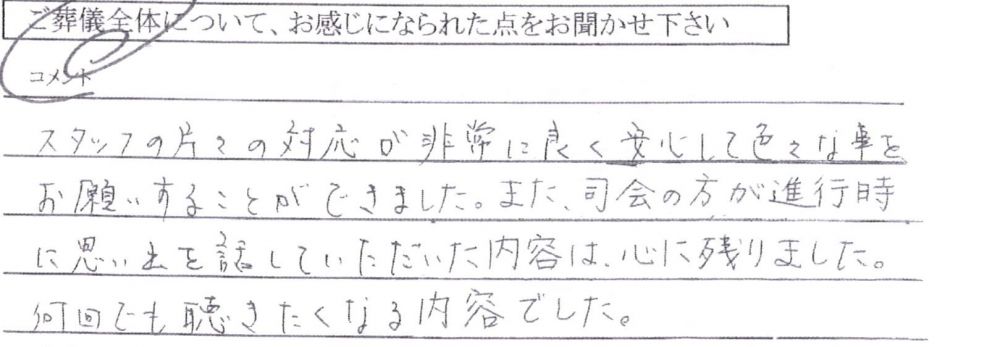 ご葬儀全体について、お感じになられた点をお聞かせ下さい
コメント
スタッフの片々の対応が非常に良く安心して色々な事を
お願いすることができました。また、司会の方が進行時
に思い出を話していただいた内容は、心に残りました。
何回でも聴きたくなる内容でした。